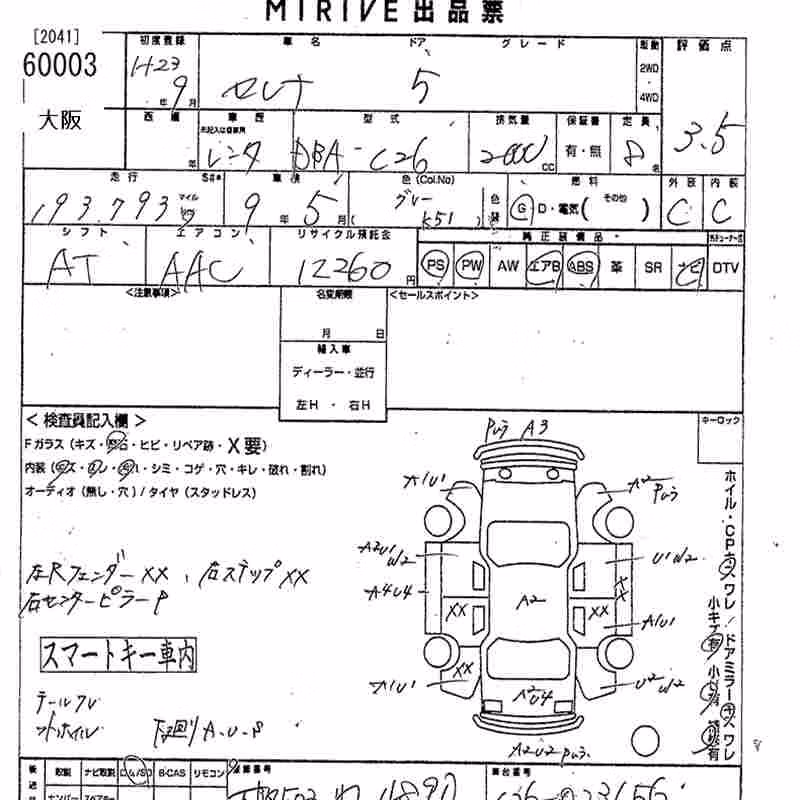 MIRIVE 出品票
[2041]
60003
大阪
初度登録
H23
9
年 月
車名
セレナ
ドア
5
グレード
駆動
2WD
・
4WD
評価点
3.5
西暦
年
車歴
未記入は自家用
レンタ
型式
DBA-C26
排気量
2000
CC
保証書
有・無
定員
8
名
走行
S#*
193,793
マイル
km
車検
9年5月
色 (Col.No)
グレー
(K51)
色替
燃料
G D・電気( その他 )
外装
C
内装
C
シフト
AT
エアコン
AAC
リサイクル預託金
12260
円
純正装備品
PS PW AW エアB ABS 革 SR ナビ DTV
<注意事項>
名変期限
月 日
輸入車
ディーラー・並行
左H ・ 右H
<セールスポイント>
<検査員記入欄>
キーロック
Fガラス(キズ・飛石・ヒビ・リペア跡・X要)
内装(・シミ・コゲ・穴・キレ・破れ・割れ)
オーディオ(無し・穴)/タイヤ(スタッドレス)
左Rフェンダー XX 、右ステップ XX
右センターピラー P
スマートキー車内
テールフレ
下廻り A・U・P
A3
A1U1
A2
A2U1
W2
U1W2
A4U4
A2
XX
XX
XX
XX
A1U1
A1U1
U2W2
A2U4
A2U2
ホイル・CPキズワレ/ドアミラーキズワレ
取説
ナビ取説
B-CAS
リモコン
登録番号
車台番号
スペアキー